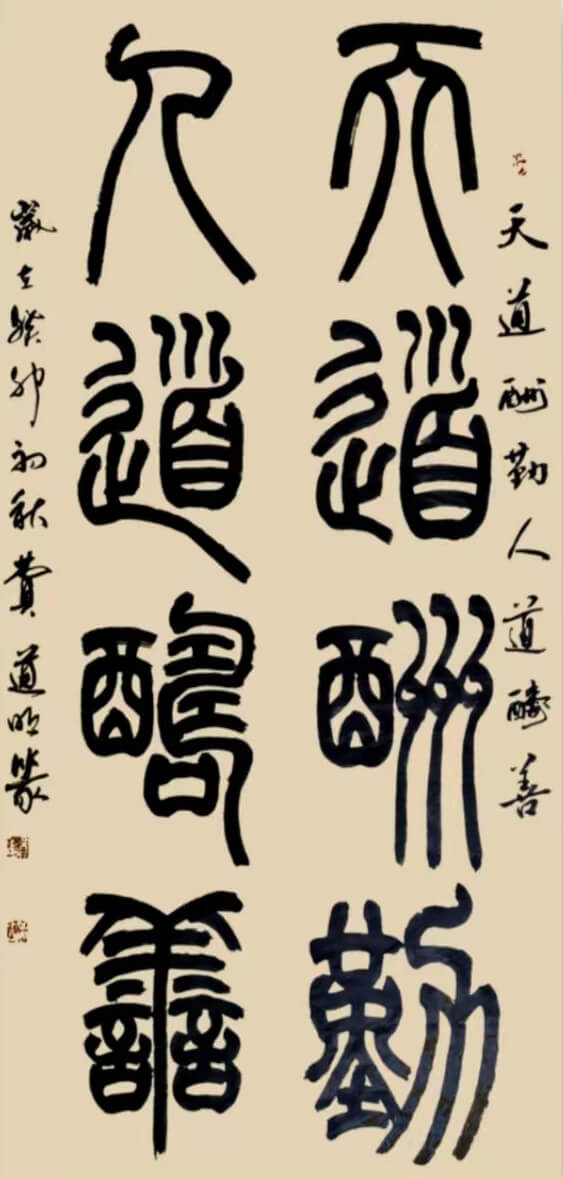 天道酬勤人道醻善
天道酬勤
人道醻善
歲在癸卯初秋道明篆